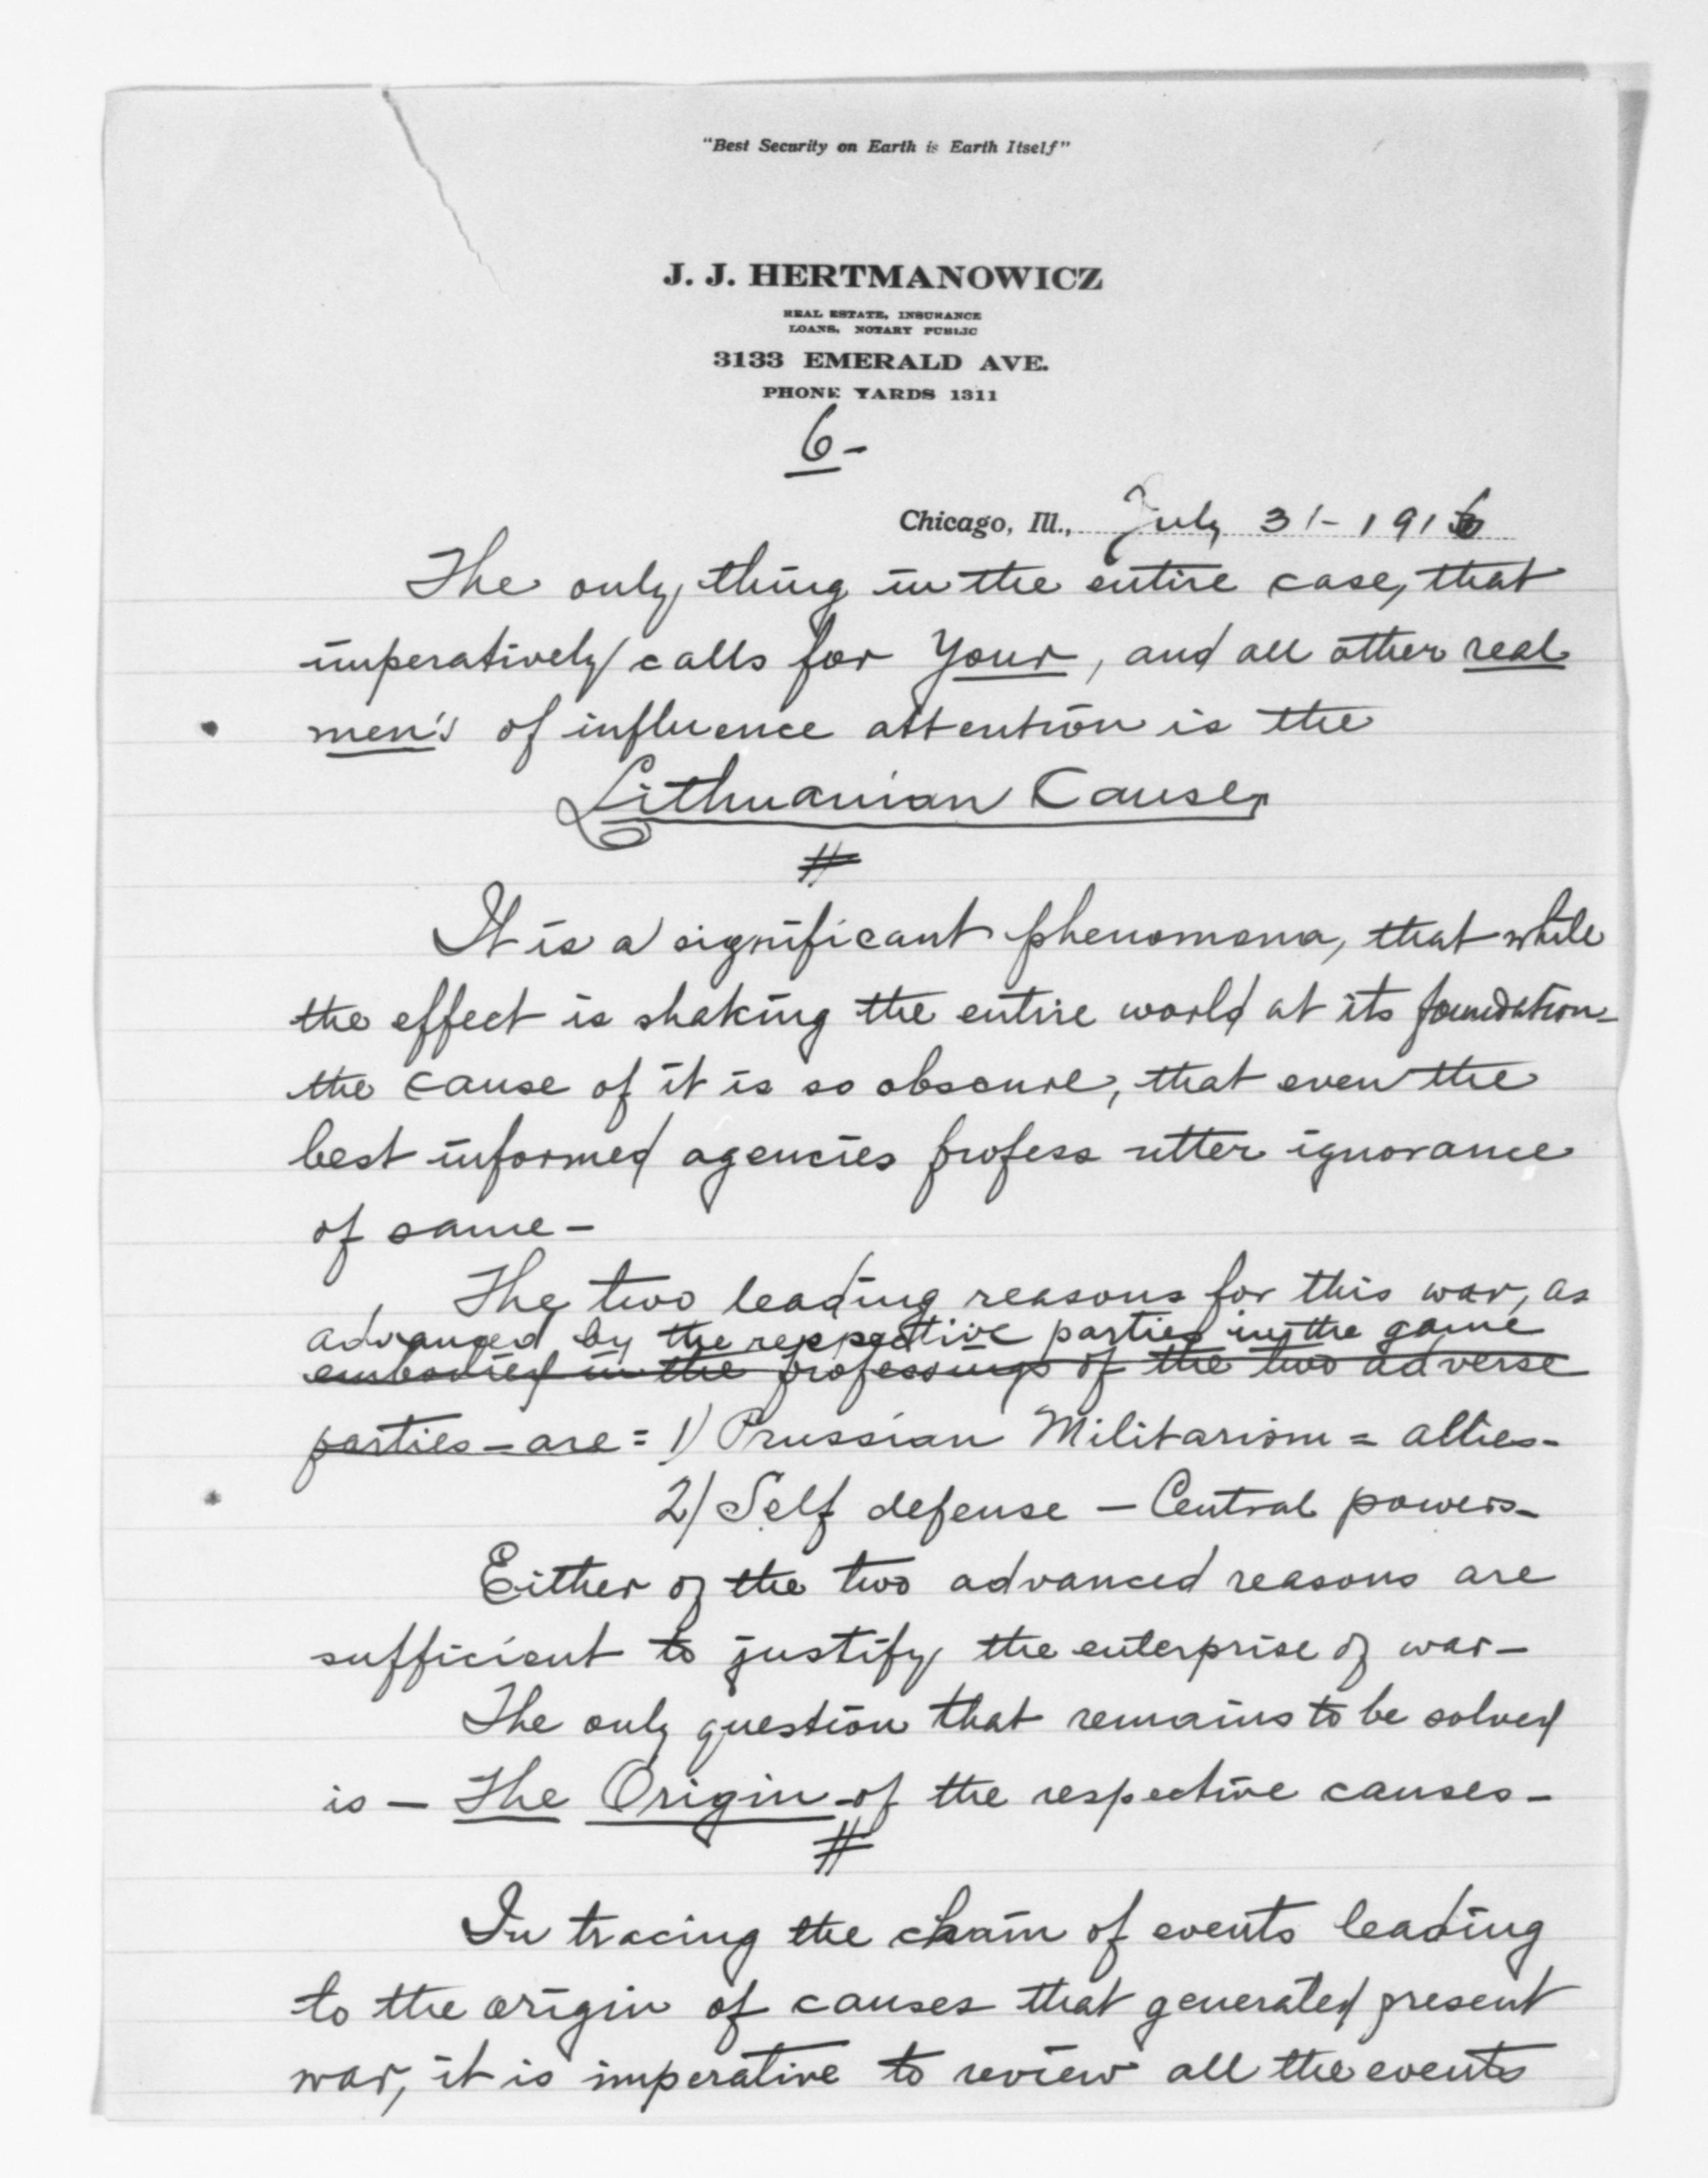 "Best Security on Earth is Earth Itself"
J. J. HERTMANOWICZ
REAL ESTATE, INSURANCE
LOANS, NOTARY PUBLIC
3133 EMERALD AVE.
PHONE YARDS 1311
6-
Chicago, Ill., July 31-1916
The only thing in the entire case, that
imperatively calls for Your, and all other real
men's of influence attention is the
Lithuanian Cause,
#
It is a significant phenomena, that while
the effect is shaking the entire world at its foundation-
the cause of it is so obscure, that even the
best informed agencies profess utter ignorance
of same-
The two leading reasons for this war, as
advanced by the respective parties in the game
embodied in the professings of the two adverse
parties - are = 1) Prussian Militarism = allies-
2) Self defense - Central powers-
Either of the two advanced reasons are
sufficient to justify the enterprise of war-
The only question that remains to be solved
is - The Origin - of the respective causes-
#
In tracing the chain of events leading
to the origin of causes that generated present
war, it is imperative to review all the events